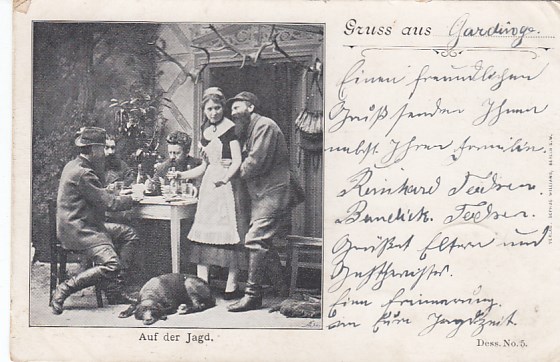 Gruss aus Garding.
Einen freundlichen
Gruß sendet Ihnen
nebst Ihrer Familie.
Reinhard Fedder.
Fedder.
Grüßet Eltern und
Geschwister.
Eine Erinnerung
an Eure Jagdzeit.
Auf der Jagd.
Dess. No. 5.